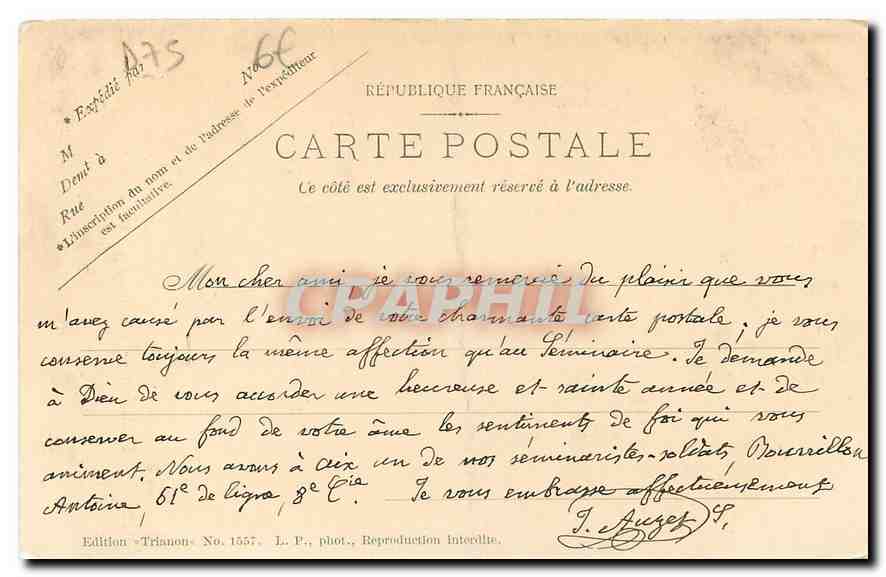 A75
6€
* Expédié par
No
M
Demt à
Rue
*L'inscription du nom et de l'adresse de l'expéditeur
est facultative.
RÉPUBLIQUE FRANÇAISE
CARTE POSTALE
Ce côté est exclusivement réservé à l'adresse.
CPAPHIL
Mon cher ami, je vous remercie du plaisir que vous
m'avez causé par l'envoi de votre charmante carte postale ; je vous
conserve toujours la même affection qu'au Séminaire. Je demande
à Dieu de vous accorder une heureuse et sainte année et de
conserver au fond de votre âme les sentiments de foi qui vous
animent. Nous avons à Aix un de nos séminaristes-soldats, Bourrillon
Antoine, 61e de ligne, 8e Cie. Je vous embrasse affectueusement
J. Auzet S.
Edition «Trianon» No. 1557. L. P., phot., Reproduction interdite.